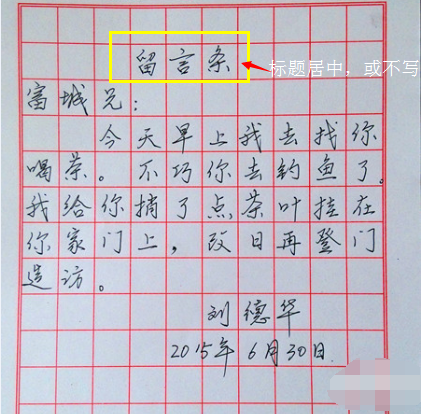 留言条
标题居中，或不写
富城兄：
今天早上我去找你
喝茶。不巧你去钓鱼了。
我给你捎了点茶叶挂在
你家门上，改日再登门
造访。
刘德华
2015年6月30日.